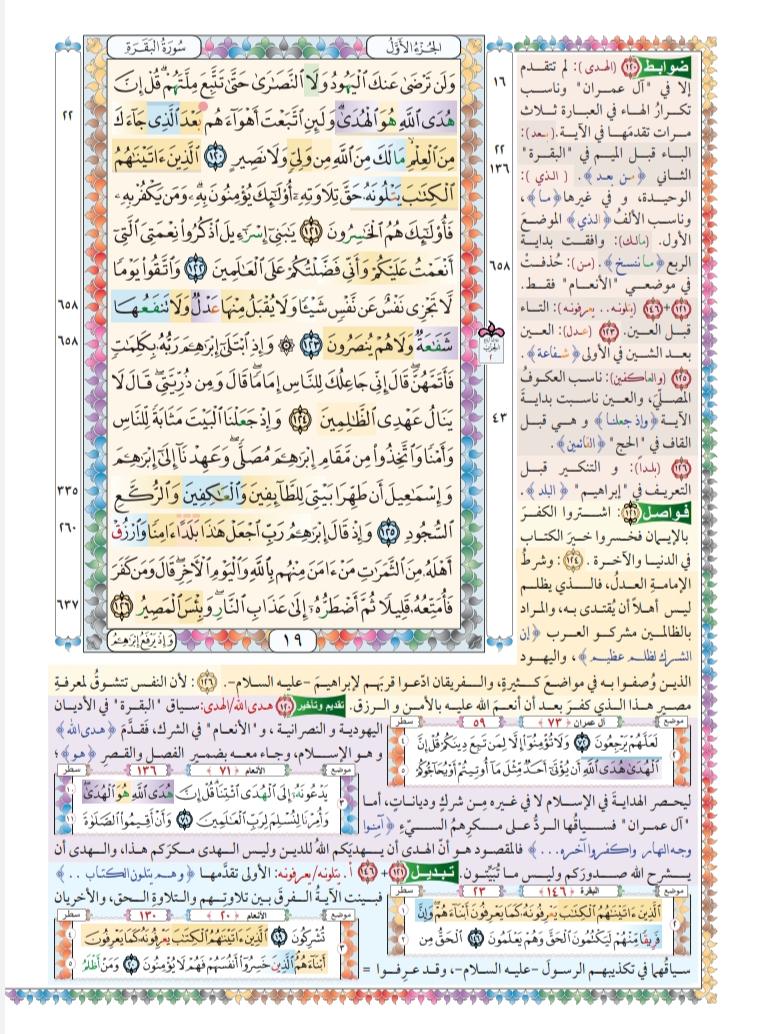 سُورَةُ البَقَرَةِ
الجُزْءُ الأَوَّلُ
وَلَن تَرْضَىٰ عَنكَ ٱلْيَهُودُ وَلَا ٱلنَّصَٰرَىٰ حَتَّىٰ تَتَّبِعَ مِلَّتَهُمْ ۗ قُلْ إِنَّ
هُدَى ٱللَّهِ هُوَ ٱلْهُدَىٰ ۗ وَلَئِنِ ٱتَّبَعْتَ أَهْوَآءَهُم بَعْدَ ٱلَّذِى جَآءَكَ
مِنَ ٱلْعِلْمِ ۙ مَا لَكَ مِنَ ٱللَّهِ مِن وَلِىٍّ وَلَا نَصِيرٍ ١٢٠ ٱلَّذِينَ ءَاتَيْنَٰهُمُ
ٱلْكِتَٰبَ يَتْلُونَهُۥ حَقَّ تِلَاوَتِهِۦٓ أُو۟لَٰٓئِكَ يُؤْمِنُونَ بِهِۦ ۗ وَمَن يَكْفُرْ بِهِۦ
فَأُو۟لَٰٓئِكَ هُمُ ٱلْخَٰسِرُونَ ١٢١ يَٰبَنِىٓ إِسْرَٰٓءِيلَ ٱذْكُرُوا۟ نِعْمَتِىَ ٱلَّتِىٓ
أَنْعَمْتُ عَلَيْكُمْ وَأَنِّى فَضَّلْتُكُمْ عَلَى ٱلْعَٰلَمِينَ ١٢٢ وَٱتَّقُوا۟ يَوْمًا
لَّا تَجْزِى نَفْسٌ عَن نَّفْسٍ شَيْـًٔا وَلَا يُقْبَلُ مِنْهَا عَدْلٌ وَلَا تَنفَعُهَا
شَفَٰعَةٌ وَلَا هُمْ يُنصَرُونَ ١٢٣ ۞ وَإِذِ ٱبْتَلَىٰٓ إِبْرَٰهِـۧمَ رَبُّهُۥ بِكَلِمَٰتٍ
فَأَتَمَّهُنَّ ۖ قَالَ إِنِّى جَاعِلُكَ لِلنَّاسِ إِمَامًا ۖ قَالَ وَمِن ذُرِّيَّتِى ۖ قَالَ لَا
يَنَالُ عَهْدِى ٱلظَّٰلِمِينَ ١٢٤ وَإِذْ جَعَلْنَا ٱلْبَيْتَ مَثَابَةً لِّلنَّاسِ
وَأَمْنًا وَٱتَّخِذُوا۟ مِن مَّقَامِ إِبْرَٰهِـۧمَ مُصَلًّى ۖ وَعَهِدْنَآ إِلَىٰٓ إِبْرَٰهِـۧمَ
وَإِسْمَٰعِيلَ أَن طَهِّرَا بَيْتِىَ لِلطَّآئِفِينَ وَٱلْعَٰكِفِينَ وَٱلرُّكَّعِ
ٱلسُّجُودِ ١٢٥ وَإِذْ قَالَ إِبْرَٰهِـۧمُ رَبِّ ٱجْعَلْ هَٰذَا بَلَدًا ءَامِنًا وَٱرْزُقْ
أَهْلَهُۥ مِنَ ٱلثَّمَرَٰتِ مَنْ ءَامَنَ مِنْهُم بِٱللَّهِ وَٱلْيَوْمِ ٱلْـَٔاخِرِ ۖ قَالَ وَمَن كَفَرَ
فَأُمَتِّعُهُۥ قَلِيلًا ثُمَّ أَضْطَرُّهُۥٓ إِلَىٰ عَذَابِ ٱلنَّارِ ۖ وَبِئْسَ ٱلْمَصِيرُ ١٢٦
١٩
وَإِذْ يَرْفَعُ إِبْرَٰهِـۧمُ
٢٢
٦٥٨
٦٥٨
٣٣٥
٢٦٠
٦٣٧
١٦
٢٢
١٣٦
٦٥٨
٤٣
ضوابط ١٢٠ (الهدى): لم تتقدم
إلا في "آل عمران" وناسب
تكرارُ الهاء في العبارة ثلاث
مرات تقدمَها في الآية. (بعد):
الباء قبل الميم في "البقرة"
الثاني ﴿من بعد﴾. (الذي):
الوحيدة، و في غيرها ﴿ما﴾،
وناسب الألفُ ﴿الذي﴾ الموضعَ
الأول. (مالك): وافقت بداية
الربع ﴿ما ننسخ﴾. (من): حُذفت
في موضعي "الأنعام" فقط.
١٢١+١٤٦ (يتلونه .. يعرفونه): التاء
قبل العين. ١٢٣ (عدل): العين
بعد الشين في الأولى ﴿شفاعة﴾.
١٢٥ (والعاكفين): ناسب العكوفُ
المصلَّى، والعين ناسبت بدايةَ
الآية ﴿وإذ جعلنا﴾ و هي قبل
القاف في "الحج" ﴿القائمين﴾.
١٢٦ (بلدا): و التنكير قبل
التعريف في "إبراهيم" ﴿البلد﴾.
فواصل ١٢١: اشتروا الكفرَ
بالإيمان فخسروا خيرَ الكتاب
في الدنيا والآخرة. ١٢٤: وشرطُ
الإمامةِ العدلُ، فالذي يظلم
ليس أهلاً أن يُقتدى به، والمراد
بالظالمين مشركو العرب ﴿إن
الشرك لظلم عظيم﴾، واليهود
الذين وُصفوا به في مواضعَ كثيرةٍ، والفريقان ادّعوا قربَهم لإبراهيم -عليه السلام-. ١٢٦: لأن النفس تتشوقُ لمعرفةِ
مصير هذا الذي كفر بعد أن أنعمَ الله عليه بالأمن و الرزق. تقديم وتأخير ١٢٠ هدى الله/الهدى: سياق "البقرة" في الأديان
اليهودية و النصرانية، و "الأنعام" في الشرك، فقدَّمَ ﴿هدى الله﴾
و هو الإسلام، وجاء معه بضمير الفصل والقصرِ ﴿هو﴾؛
موضع آل عمران ﴿٧٣﴾ ٥٩ سطر
٢ لَعَلَّهُمْ يَرْجِعُونَ ٧٢ وَلَا تُؤْمِنُوٓا۟ إِلَّا لِمَن تَبِعَ دِينَكُمْ قُلْ إِنَّ ٤
ٱلْهُدَىٰ هُدَى ٱللَّهِ أَن يُؤْتَىٰٓ أَحَدٌ مِّثْلَ مَآ أُوتِيتُمْ أَوْ يُحَآجُّوكُمْ ٥
موضع الأنعام ﴿٧١﴾ ١٣٦ سطر
٣ يَدْعُونَهُۥٓ إِلَى ٱلْهُدَى ٱئْتِنَا ۗ قُلْ إِنَّ هُدَى ٱللَّهِ هُوَ ٱلْهُدَىٰ ۖ ١٠
وَأُمِرْنَا لِنُسْلِمَ لِرَبِّ ٱلْعَٰلَمِينَ ٧١ وَأَنْ أَقِيمُوا۟ ٱلصَّلَوٰةَ ١١
ليحصر الهداية في الإسلام لا في غيره من شركٍ ودياناتٍ، أما
"آل عمران" فسياقُها الردُّ على مكرِهمُ السيءِ ﴿آمنوا
وجه النهار واكفروا آخره...﴾ فالمقصود هو أنَّ الهدى أن يهديَكم اللهُ للدين وليس الهدى مكرَكم هذا، والهدى أن
يشرح الله صدورَكم وليس ما تُبَيِّتُون. تبديل ١٢١+١٤٦ أ. يتلونه/يعرفونه: الأولى تقدَّمها ﴿وهم يتلون الكتاب ..﴾
فبينت الآيةُ الفرقَ بين تلاوتهم والتلاوةِ الحق، والأخريان
موضع البقرة ﴿١٤٦﴾ ٢٣ سطر
٢ ٱلَّذِينَ ءَاتَيْنَٰهُمُ ٱلْكِتَٰبَ يَعْرِفُونَهُۥ كَمَا يَعْرِفُونَ أَبْنَآءَهُمْ ۖ وَإِنَّ ١
فَرِيقًا مِّنْهُمْ لَيَكْتُمُونَ ٱلْحَقَّ وَهُمْ يَعْلَمُونَ ١٤٦ ٱلْحَقُّ مِن ٢
موضع الأنعام ﴿٢٠﴾ ١٣٠ سطر
٣ تُشْرِكُونَ ١٩ ٱلَّذِينَ ءَاتَيْنَٰهُمُ ٱلْكِتَٰبَ يَعْرِفُونَهُۥ كَمَا يَعْرِفُونَ ٤
أَبْنَآءَهُمُ ۘ ٱلَّذِينَ خَسِرُوٓا۟ أَنفُسَهُمْ فَهُمْ لَا يُؤْمِنُونَ ٢٠ وَمَنْ أَظْلَمُ ٥
سياقُهما في تكذيبهم الرسولَ -عليه السلام-، وقد عرفوا =